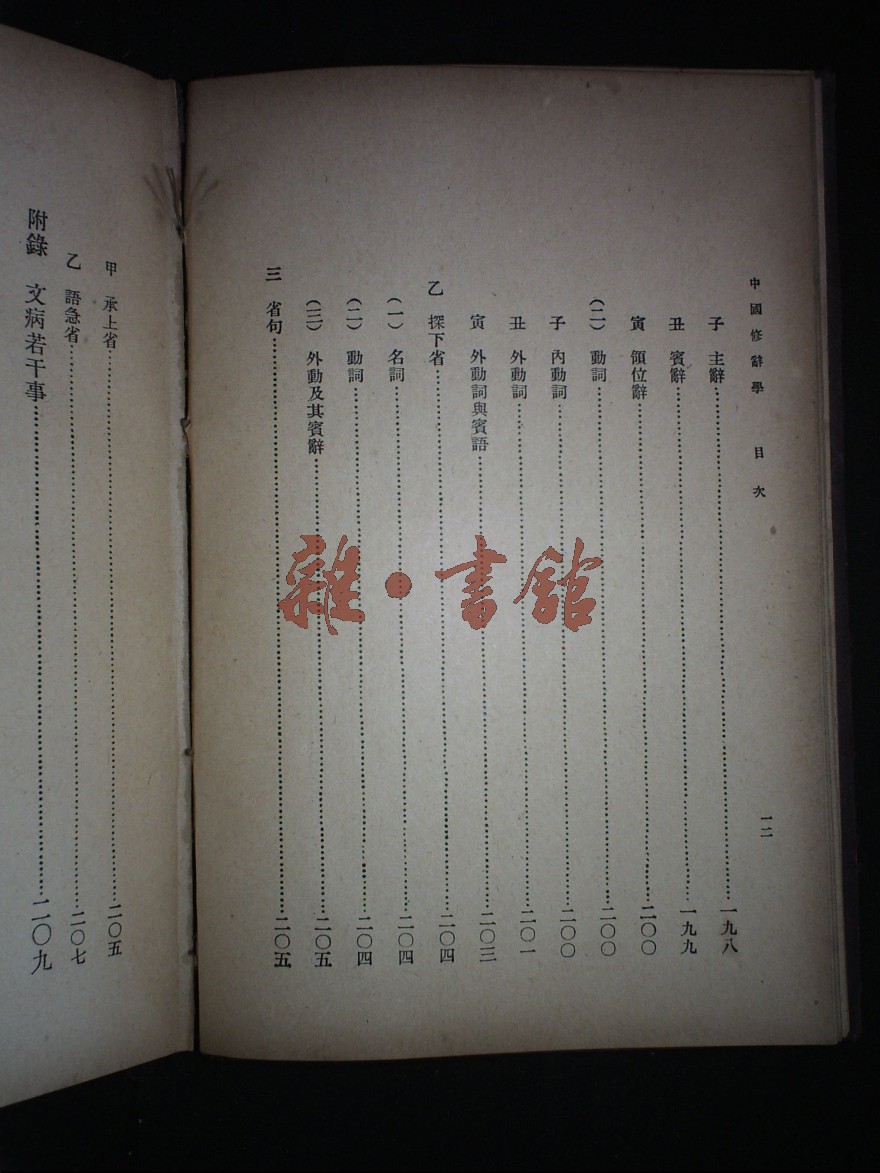 中國修辭學 目次 一二
子 主辭 一九八
丑 賓辭 一九九
寅 領位辭 二〇〇
(二) 動詞 二〇〇
子 內動詞 二〇〇
丑 外動詞 二〇一
寅 外動詞與賓語 二〇三
乙 探下省 二〇四
(一) 名詞 二〇四
(二) 動詞 二〇四
(三) 外動及其賓辭 二〇五
三 省句 二〇五
甲 承上省 二〇五
乙 語急省 二〇七
附錄 文病若干事 二〇九
雜·書館